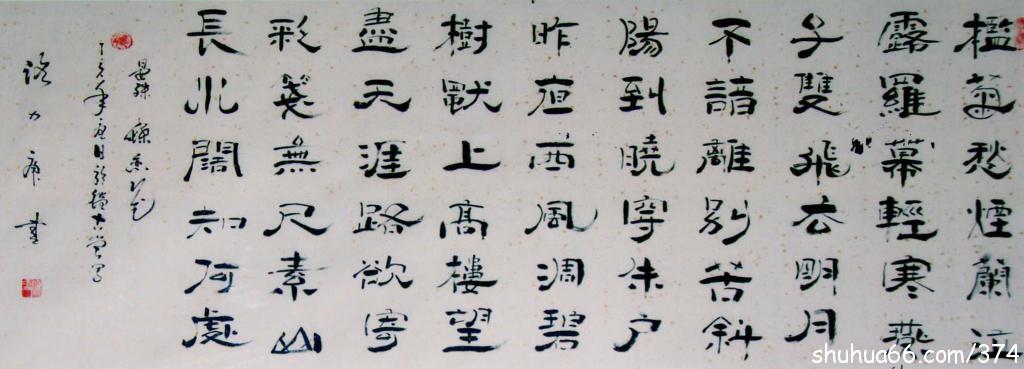 檻菊愁煙蘭泣
露羅幕輕寒燕
子雙飛去明月
不諳離别苦斜
陽到曉穿朱户
昨夜西風凋碧
樹上高樓望
盡天涯路欲寄
彩箋無尺素山
長水闊知何處
晏殊
丁亥年
書
shuhua66.com/374